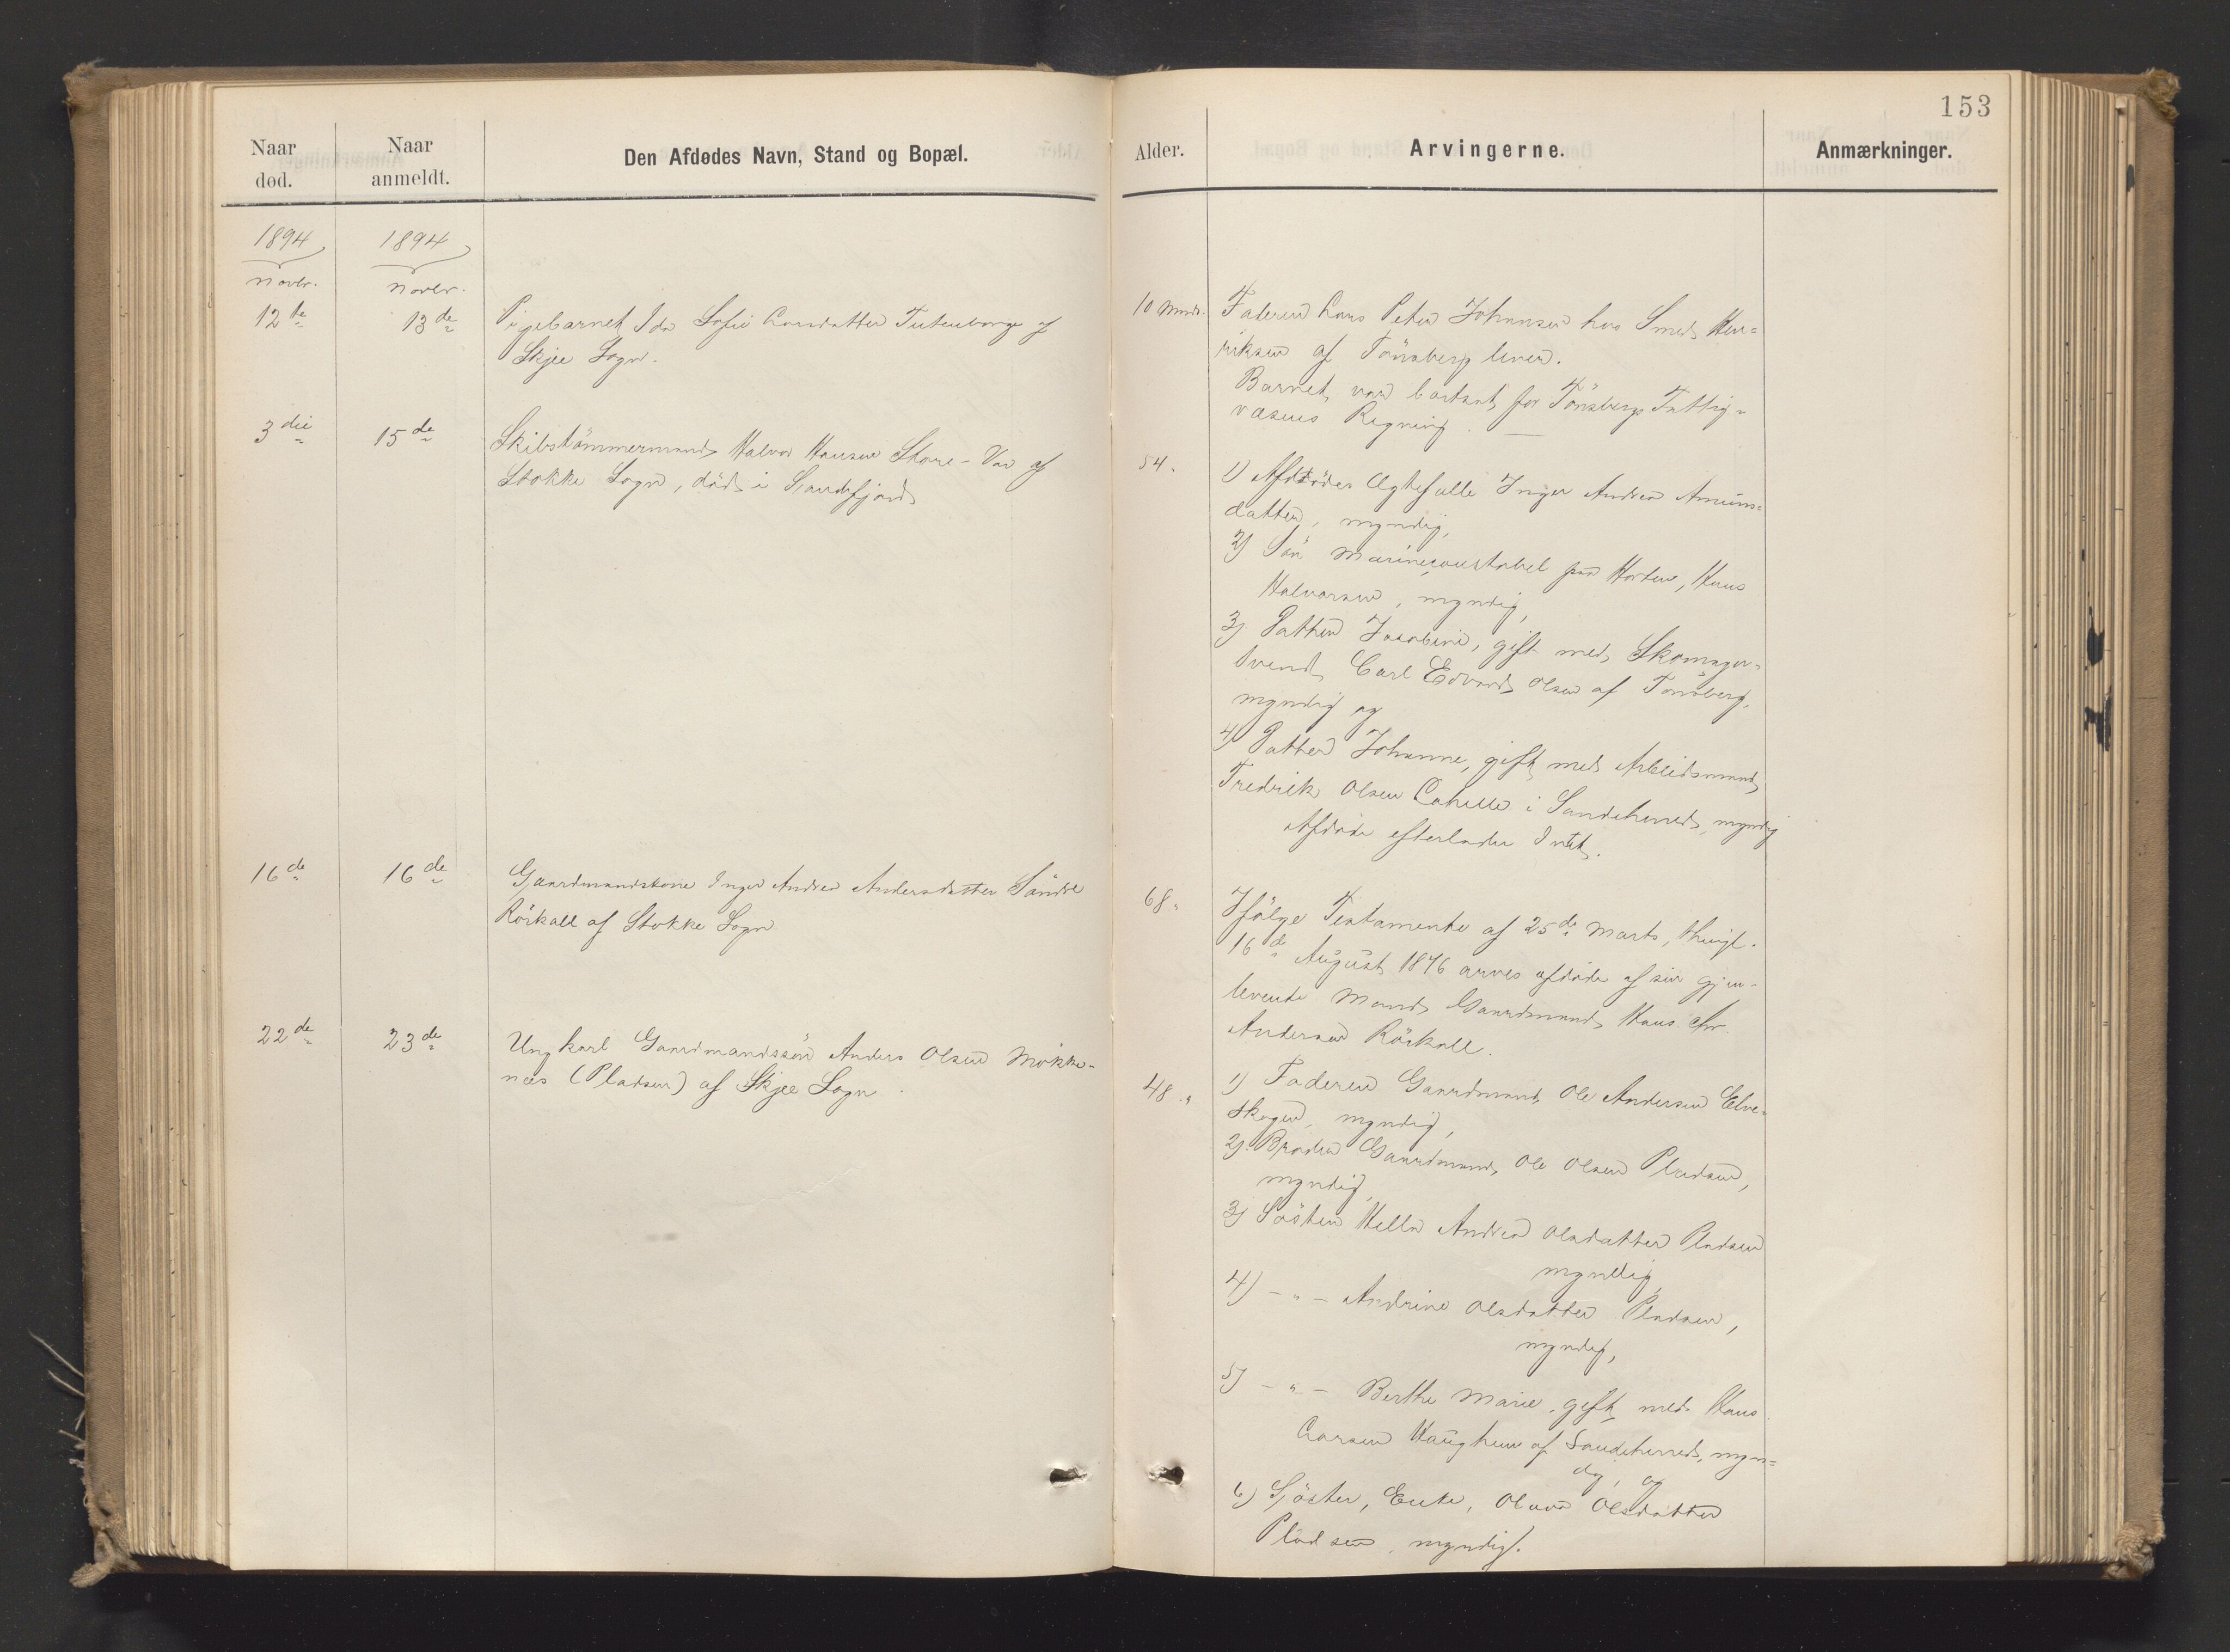 153
Naar
død.
Naar
anmeldt.
Den Afdødes Navn, Stand og Bopæl.
Alder.
Arvingerne.
Anmærkninger.
1894
1894
Novbr.
Novbr.
12te
13de
Pigebarnet Ida Sofie Larsdatter af
Skjee Sogn.
10 Mndr.
Faderen Lars Peter Johansen hos Smed Hen-
riksen af Tönsberg lever.
Barnet var bortsat for Tönsbergs Fattig-
væsens Regning.
3die
15de
Skibstömmermand Halvor Hansen Store-Var af
Stokke Sogn, död i Sandefjord
54.
1) Afdödes Ægtefælle Inger Andrea Amuns-
datter, myndig,
2) Sön Marineconstabel paa Horten, Hans
Halvorsen, myndig,
3) Datter Jacobine, gift med Skomager-
svend Carl Edvard Olsen af Tönsberg,
myndig og
4) Datter Johanne, gift med Arbeidsmand
Fredrik Olsen i Sandeherred, myndig
Afdöde efterlader Intet.
16de
16de
Gaardmandskone Inger Andrea Andersdatter Söndre
Röskall af Stokke Sogn
68.
Ifölge Testamente af 25de Marts, thingl.
16de August 1876 arves afdöde af sin gjen-
levende Mand Gaardmand Hans Chr.
Andersen Röskall.
22de
23de
Ungkarl Gaardmandssön Anders Olsen Mökke-
næs (Pladsen) af Skjee Sogn.
48.
1) Faderen Gaardmand Ole Andersen Elve-
skogen, myndig,
2) Broder Gaardmand Ole Olsen Pladsen,
myndig,
3) Söster Hella Andrea Olsdatter Pladsen
myndig,
4) - " - Andrine Olsdatter Pladsen,
myndig,
5) - " - Berthe Marie, gift med Hans
Larsen Haughem af Sandeherred, myn-
dig, og
6) Söster, Enke, Olava Olsdatter
Pladsen, myndig.